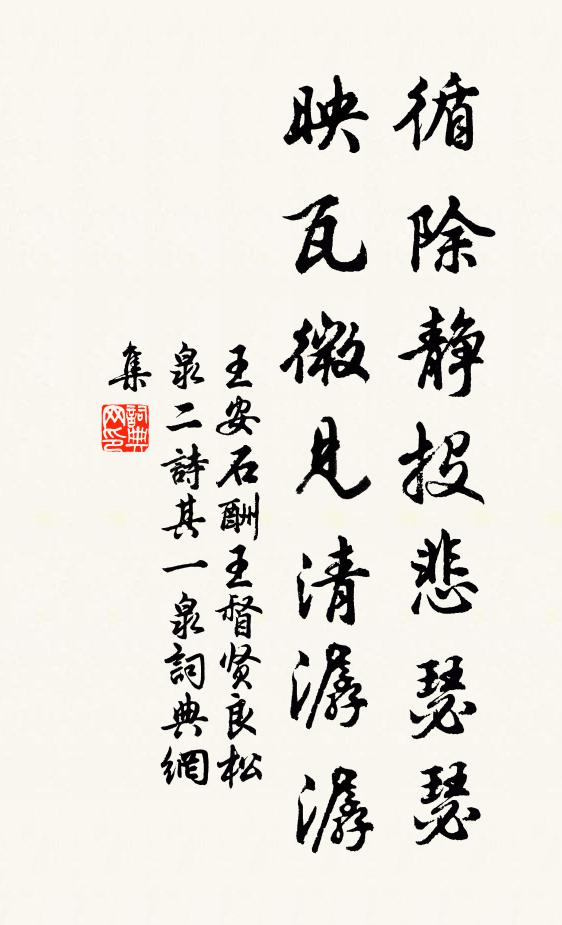 循除静投悲瑟瑟
映瓦微見清潺潺
王安石酬王督贤良松
泉二詩其一泉詞典網
集
詞典网印